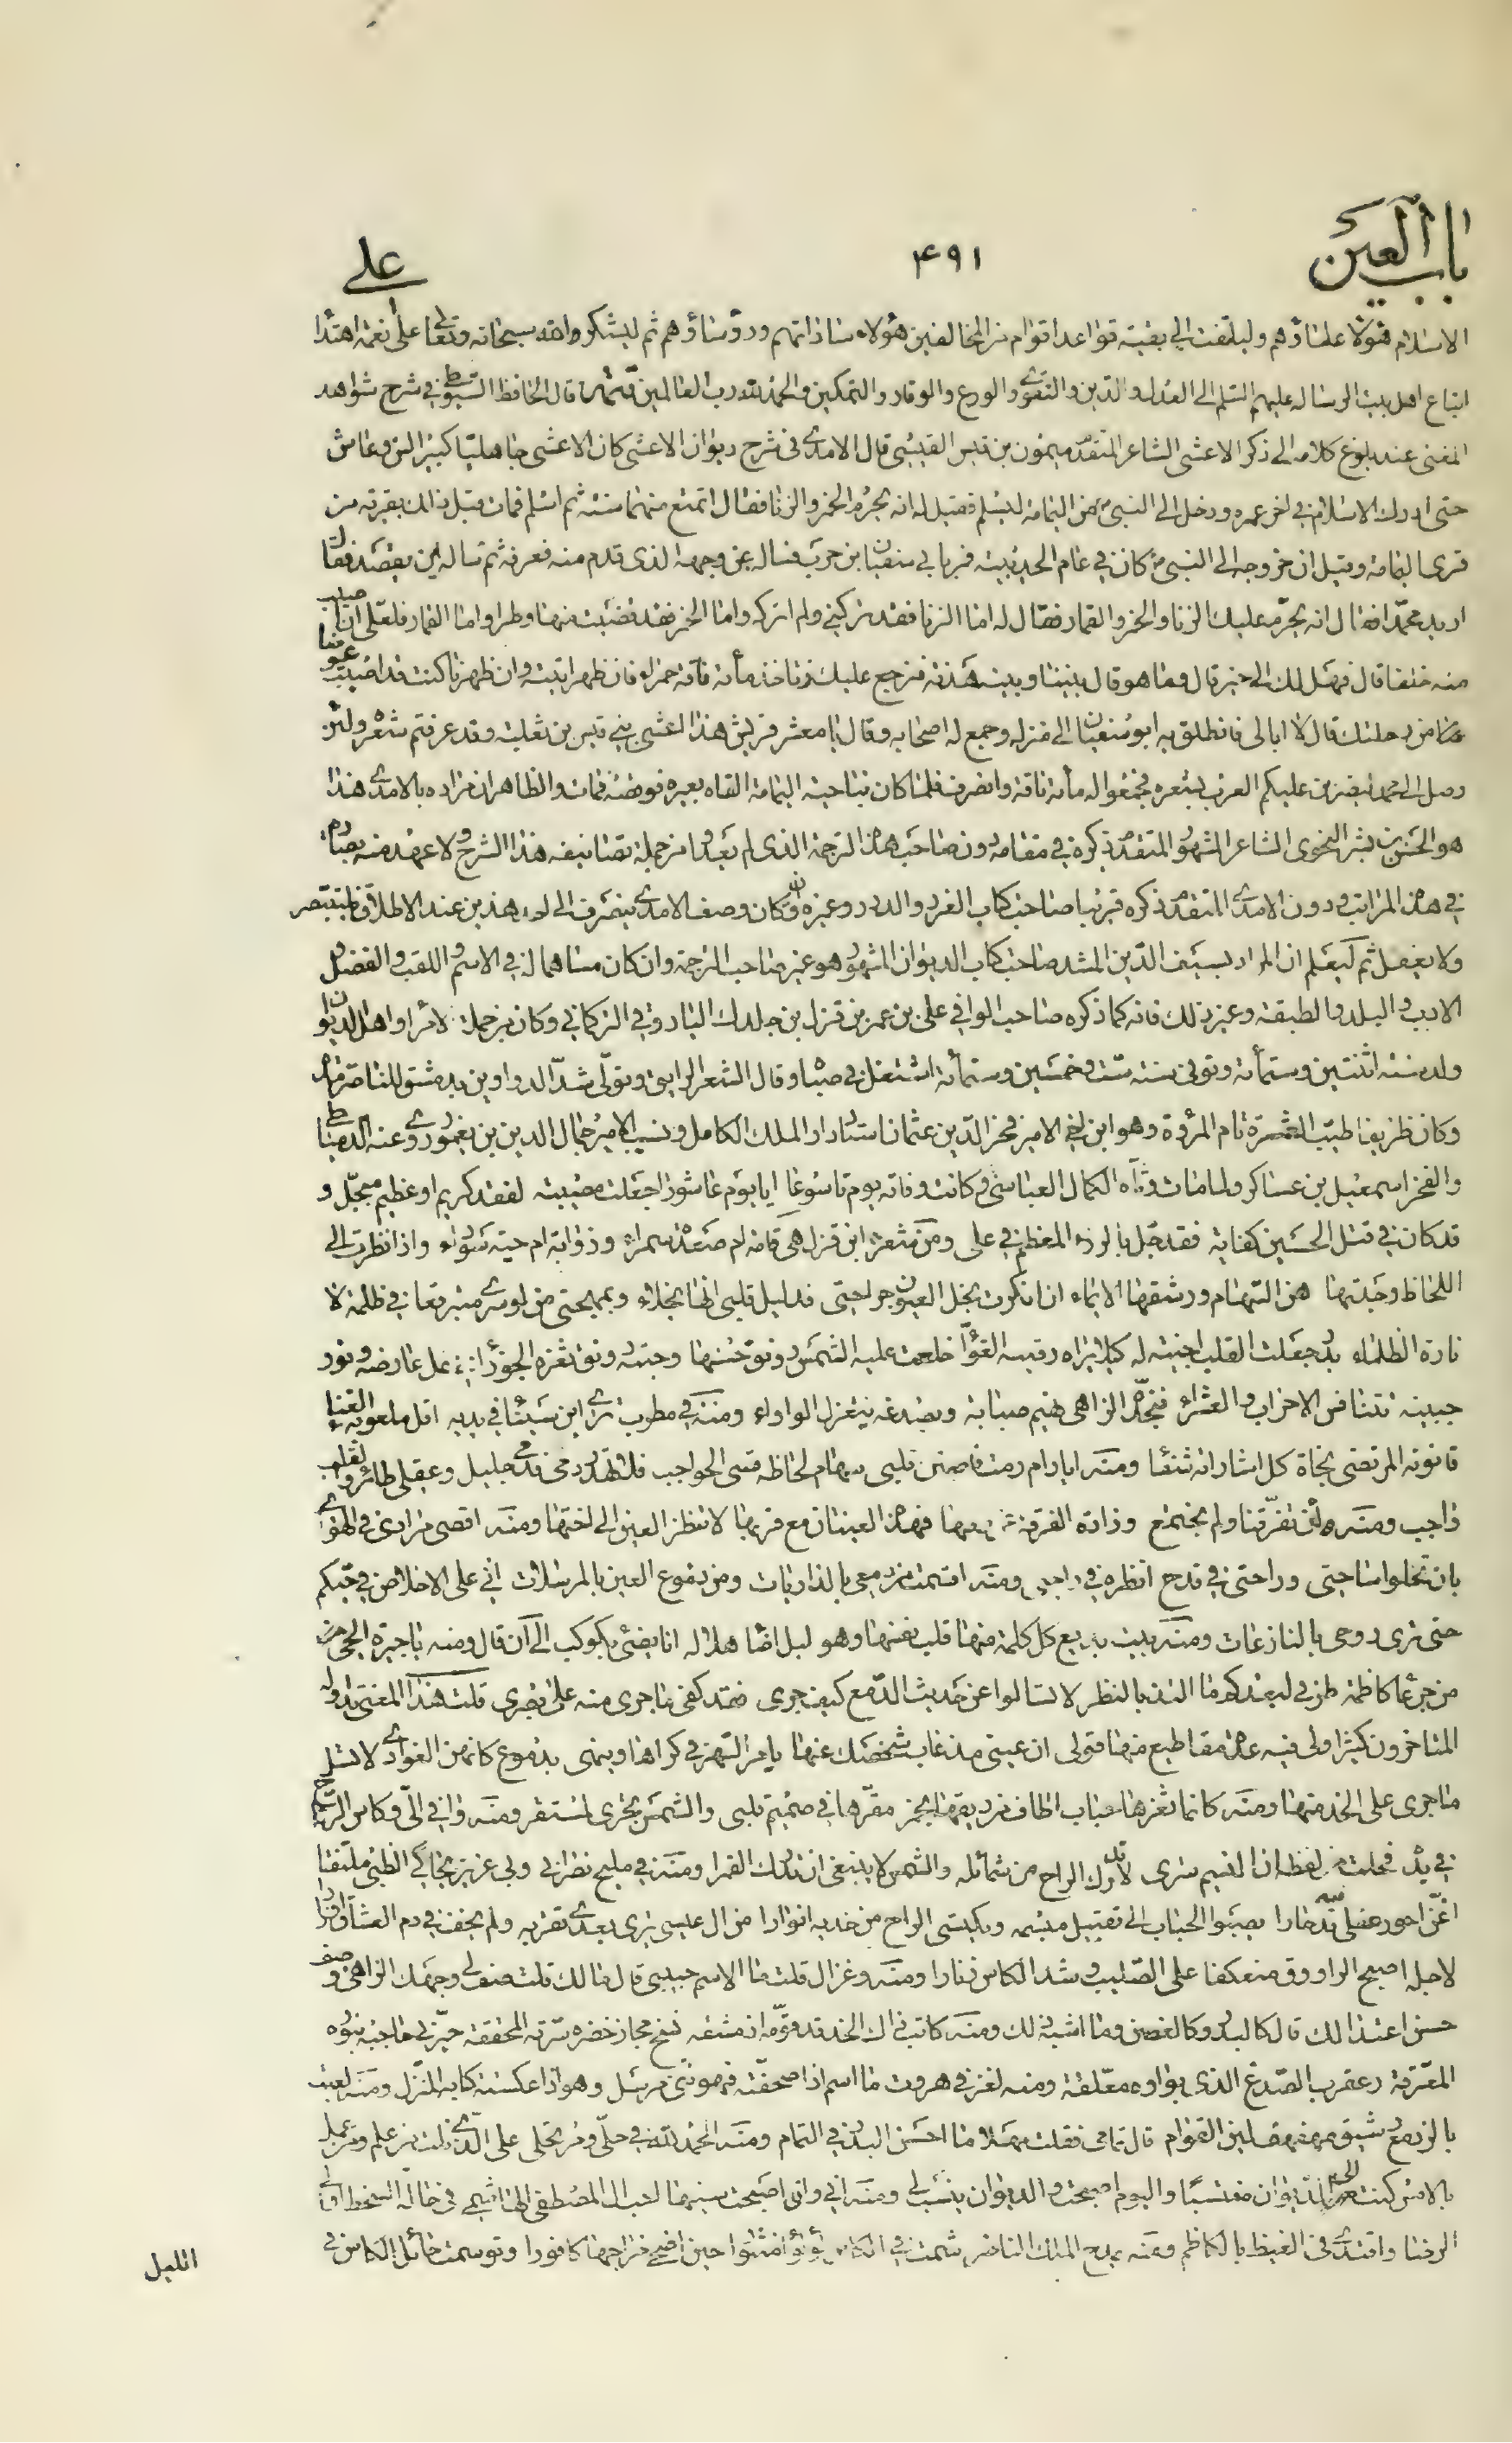 باب العين
۴۹۱
علي
الاسلام فهؤلاء علماؤهم وليلتفت الى بقية قواعد اقوام من المخالفين هؤلاء ساداتهم ورؤساؤهم ثم ليشكروا الله سبحانه وتعالى على نعمة اهتداء
اتباع اهل بيت الرسالة عليهم السلم الى العدل والدين والتقوى والورع والوقار والتمكين والحمد لله رب العالمين تتمة قال الحافظ السيوطى في شرح شواهد
المغنى عند بلوغ كلامه الى ذكر الاعشى الشاعر المتقدم ميمون بن قيس القيسى قال الامدى فى شرح ديوان الاعشى كان الاعشى جاهليا كبير السن وعاش
حتى ادرك الاسلام في اخر عمره ورحل الى النبى ص من اليمامة ليسلم فقيل له انه يحرم الخمر والزنا فقال اتمتع منهما سنة ثم اسلم فمات قبل ذلك بقرية من
قرى اليمامة وقيل ان خروجه الى النبى ص كان في عام الحديبية فمر بابي سفيان بن حرب فسأله عن وجهه الذى قدم منه فعرفه ثم سأله اين يقصد فقال
اريد محمدا فقال انه يحرم عليك الزنا والخمر والقمار فقال له اما الزنا فقد تركني ولم اتركه واما الخمر فقد قضيت منها وطرا واما القمار فلعلى ان اصيب
منه خلفا قال فهل لك الى خير قال وما هو قال بيننا وبينه هدنة فترجع عليك وتاخذ مأة ناقة حمراء فان ظهر اتيته وان ظهرنا كنت قد اصبت عوضا
من رحلتك قال لا ابالى فانطلق به ابو سفيان الى منزله وجمع له اصحابه وقال يا معشر قريش هذا اعشى بني قيس بن ثعلبة وقد عرفتم شعره ولئن
وصل الى محمد ليضربن عليكم العرب بشعره فجمعوا له مأة ناقة وانصرف فلما كان بناحية اليمامة القاه بعيره فوقصه فمات والظاهر ان مراده بالامدى هذا
هو الحسن بن بشر النحوى الشاعر المشهور المتقدم ذكره في مقامه دون صاحب هذه الترجمة الذى لم يعد من جملة تصانيفه هذا الشرح ولا عهد منه
في هذه المراتب ودون الامدى المتقدم ذكره قريبا صاحب كتاب الغرر والدرر وغيره وان كان وصف الامدى ينصرف الى احد هذين عند الاطلاق فليتبصر
ولا يغفل ثم ليعلم ان المراد بسيف الدين المشد صاحب كتاب الديوان المشهور هو غير صاحب الترجمة وان كان مساهما له في الاسم واللقب والفضل
الادب والبلد والطبقة وغير ذلك فانه كما ذكره صاحب الوافي على بن عمر بن قزل بن جلدك الياروقي التركماني وكان من جملة الامراء واهل الديوان
ولد سنة اثنتين وستمأة وتوفى سنة ست وخمسين وستمأة اشتغل في صباه وقال الشعر الرايق وتولى شد الدواوين بدمشق للناصر مدة
وكان ظريفا طيب العشرة تام المروة وهو ابن اخي الامير فخر الدين عثمان استادار الملك الكامل ونسيب الامير جمال الدين بن يغمور روى عنه الدمياطى
والفخر اسمعيل بن عساكر ولما مات رثاه الكمال العباسى وكانت وفاته يوم تاسوعا ايا يوم عاشورا جعلت مصيبة لفقد كريم او عظيم مبجل و
قد كان في قتل الحسين كفاية فقد جل بالرزء المعظم في على ومن شعر ابن قزل هي قامة ام صعدة سمراء وذؤابة ام حية سوداء واذا نظرت الى
اللحاظ وجدتها هن السهام ورشقها الايماء ان انكرت نجل العيون جراحتى فدليل قلبى انها نجلاء وبمهجتى من لو سرى متبرقعا في ظلمة لانارت
الظلماء بدر جعلت القلب اخبية له كيلا يراه رقيبه العوا خلعت عليه الشمس رونق حسنها وحبته رونق ثغره الجوزاء عارضه ونور
جبينه تتنافس الاحزاب والشعراء وبصدغه يتغزل الواواء ومنه في مطرب
قانونه المرتضى نجاة كل اشاراته شفاء ومنه ايا رام رمت قلبى سهام لحاظه قسى الحواجب وعقلى طائر والقلب
واجب ومنه تفرقنا ولم نجتمع وزادت الفرقة فهذه العينان مع قربها لا تنظر العين الى اختها ومنه اقصى مرادى في الهوى
بان تحلوا ساحتى وراحتى في قدح انظره في ومنه اقسمت من دمعى بالذاريات ومن دموع العين بالمرسلات اني على الاخلاص في حبكم
حتى ترى روحى بالنازعات ومنه بيت بديع كل كلمة منها قلب نفسها وهو ليل اضاء هلاله انا يضئ بكوكب الى ان قال ومنه يا جيرة الحى من
من جرعا كاظمة طرفي لبعدكم ما التذ بالنظر لا تسالوا عن حديث الدمع كيف جرى فقد كفى ما جرى منه على بصرى قلت هذا المعنى تداوله
المتاخرون كثيرا ولى فيه عدة مقاطيع منها قولى ان عيني مذ غاب شخصك عنها يامر السهر في كراها وينهى بدموع كانهن الغوادى لا تسل
ما جرى على الخد منها ومنه كانما ثغرها حباب وريقها خمر مقرها في صميم قلبى والشمس تجرى لمستقر ومنه وافى الى وكاس الراح
في يده فخلت من لفظه ان النسيم سرى لا تدرك الراح من شمائله والشمس لا ينبغي ان تدرك القمرا ومنه في مليح نصراني وبى عزيز يحاكي الظبى ملتفتا
اغن احور عقلى فيه قد حارا يصبو الحباب الى تقبيل مبسمه ويكتسى الراح من خديه انوارا من ال عيسى يرى بعدى تقربه ولم يخف في دم العشاق اوزارا
لاجله اصبح الراووق منعكفا على الصليب وشد الكاس زنارا ومنه وغزال قلت ما الاسم حبيبى قال مالك قلت صف لى وجهك الزاهى وصف
حسن اعتدالك قال كالبدر وكالغصن وما اشبه ذلك ومنه
المعرقة وعقرب الصدغ الذى بواوه معلقة ومنه لغز في هروت ما اسم اذا صحفته فهو نبى مرسل وهو اذا عكسته كتابه المنزل ومنه لعبت
بالنرد مع رشيق مهفهف لين القوام قال تمامى فقلت مهلا ما احسن البدر في التمام ومنه الحمد لله في حلى ومرتحلى على الذى نلت من علم ومن عمل
بالامس كنت الى الديوان منتسبا واليوم اصبحت والديوان ينسب لى ومنه اني وان اصبحت سنيا احب ال المصطفى الهاشمى في حالة السخط اوالى
الرضا واقتدى في الغيظ بالكاظم ومنه يمدح الملك الناصر مزاجها كافورا وتوسمت حامل الكاس في
الليل